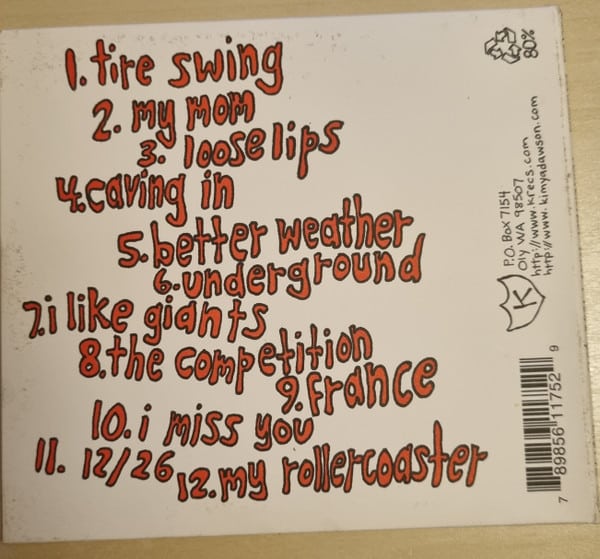 1. tire swing
2. my mom
3. loose lips
4. caving in
5. better weather
6. underground
7. i like giants
8. the competition
9. france
10. i miss you
11. 12/26
12. my rollercoaster
80%
P.O. Box 7154
Oly WA 98507
http://www.krecs.com
http://www.kimyadawson.com
K
7 89856 11752 9